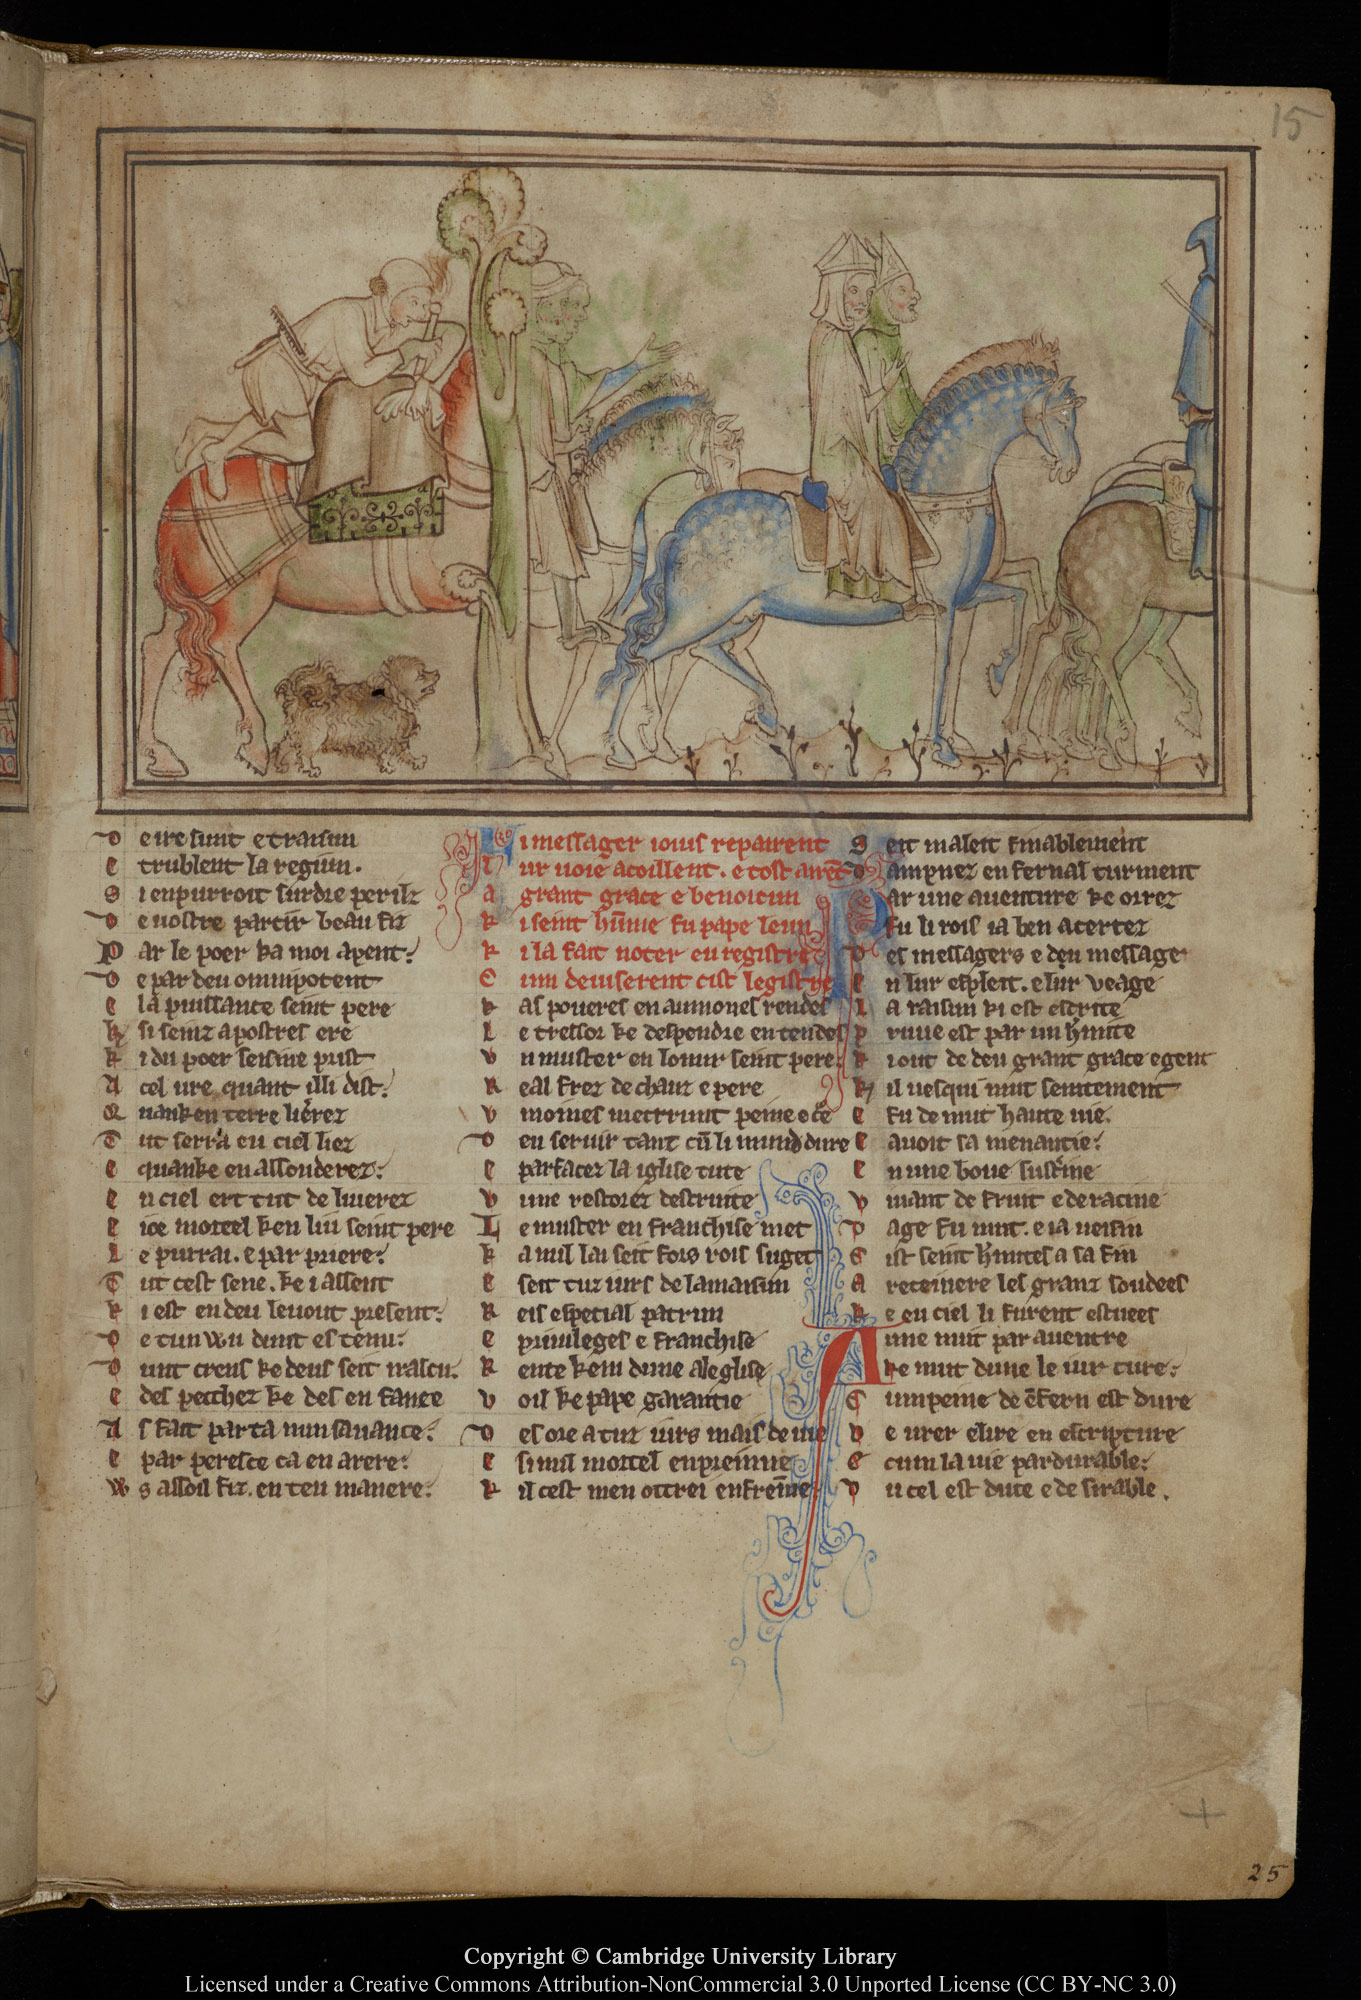 15
D e ire sunt e traisun
E trublent la regiun.
S i en purroit surdre perilz
D e vostre partir beau fiz
P ar le poer ka moi apent.
D e par deu omnipotent
E la puissante seint pere
K si seinz apostres ere
K i du poer seisine prist
A cel ure quant illi dist.
Q uank en terre lierez
T ut serra en ciel liez
E quanke en assouderez.
E n ciel ert tut deliverez
E ice mortel ken liu seint pere
L e purrai. e par priere.
T ut cest sene. ke i assent
K i est en deu levout present.
D e tun wu dunt es tenu.
D unt creus ke deus seit irascu.
E des pecchez ke des enfance
A s fait par ta nunsavance.
E par peresce ca en arere.
W s assoil fiz. en teu manere.
L i messager ioius repairent
L ur voie acoillent. e tost
A grant grace e beneicun
K i seint humme fu pape leun
K i la fait noter en registre
C um deviserent cist legistre
K as poveres en aumones rendes
L e tresor ke despendre entendes
U n muster en lonur seint pere
R eal frez de chaux e pere
U moines mettrunt peine e
D eu servir tant cum li mund dure
E parfacez la iglise tute
U une restorez destruite
L e muster en franchise met
K a nul lai seit fors rois suget
E seit tuz iurs de la maisun
R eis especial patrun
E privileges e franchise
K ente kem dune al eglise
V oil ke pape garantie
D es ore a tuz iurs mais de vie
E si nul mortel enpreinne
K il cest men ottrei enfreine
S eit maleit finablement
D ampnez en fernal turment
P ar une aventure ke oirez
F u li rois ia ben acertez
D es messagers e deu message
E n lur espleit. e lur veage
L a raisun ki est escrite
P ruve est par un hermite
K i out de deu grant grace e gent
K il vesqui mut seintement
E fu de mut haute vie.
E avoit sa menantie.
E n une bove susterine
V ivant de fruit e de racine
D age fu mut. e ia veisin
C ist seint hermites a sa fin
A receivere les granz soudees
K e en ciel li furent estuees
A une nuit par aventre
K e mut dune le iur cure.
C um peine de enfern est dure
V e urer e lire en escripture
C um la vie pardurable.
D u cel est duce e desirable.
25
Copyright © Cambridge University Library
Licensed under a Creative Commons Attribution-NonCommercial 3.0 Unported License (CC BY-NC 3.0)